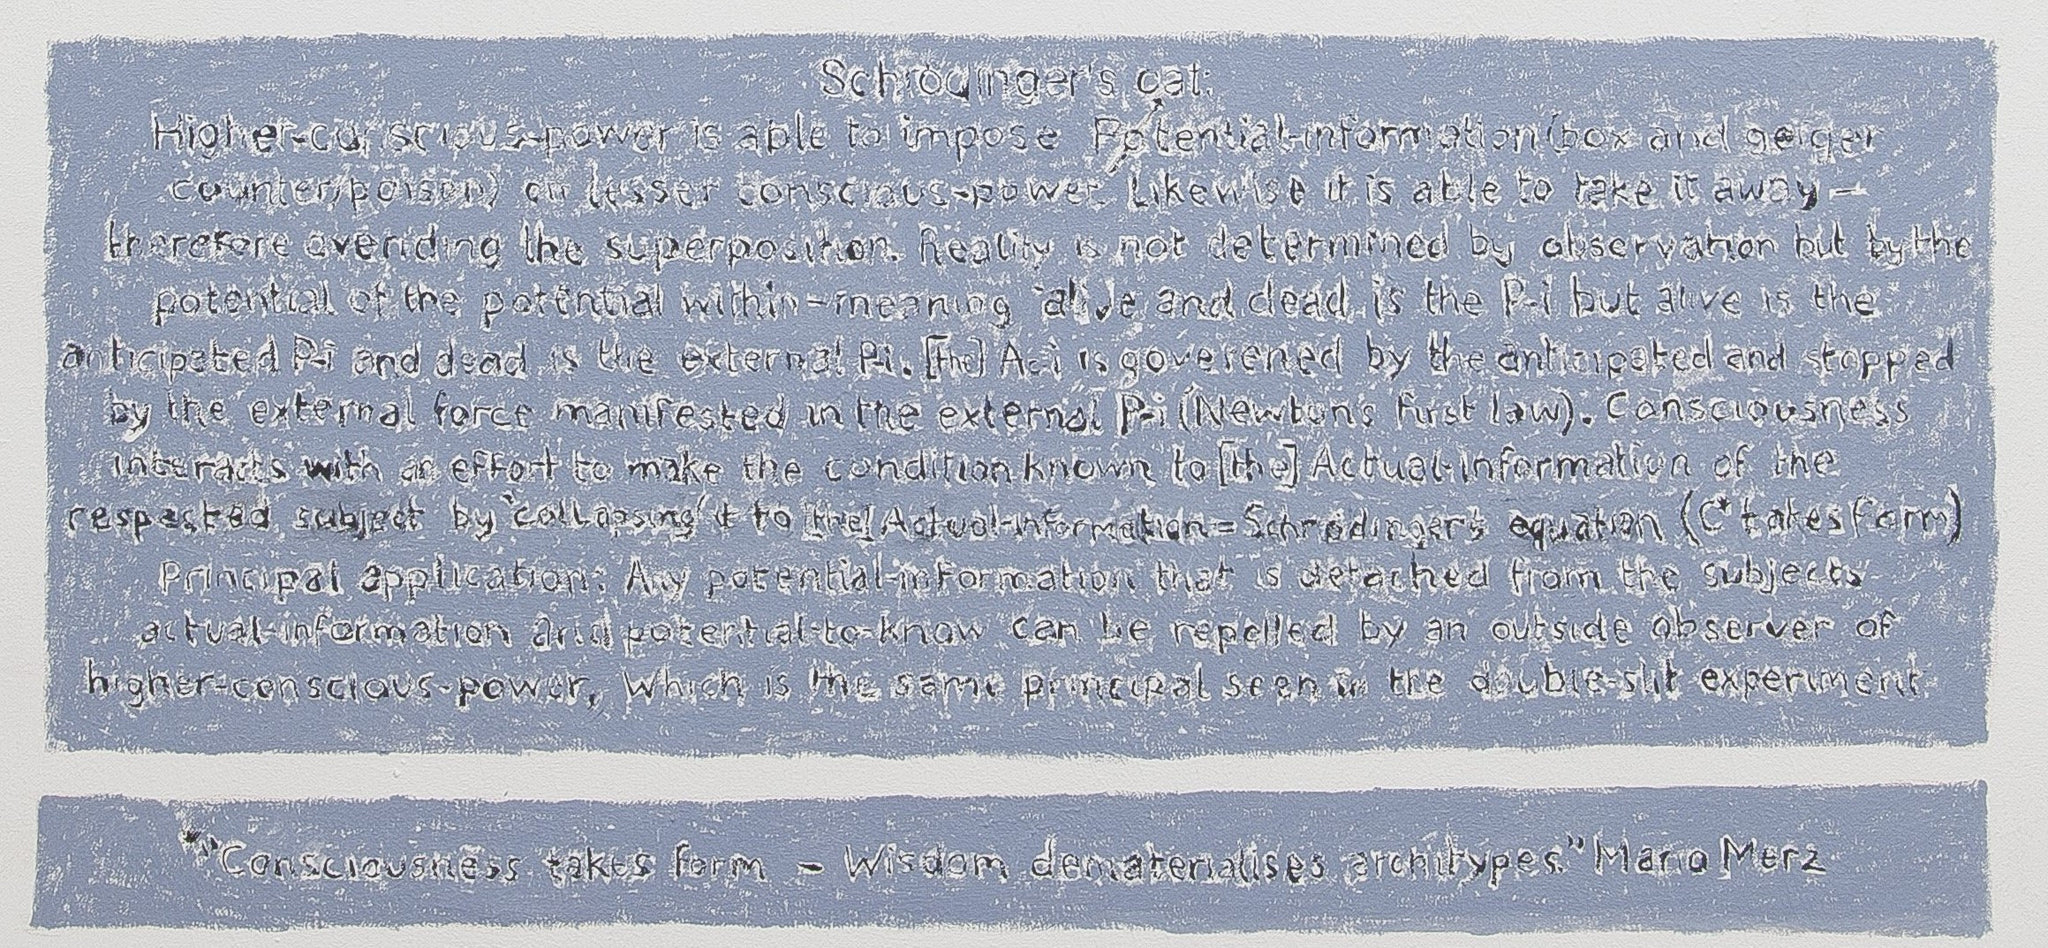 Schrödinger's cat:
Higher-conscious-power is able to impose Potential-information (box and geiger
counter/poison) on lesser conscious-power. Likewise it is able to take it away –
therefore overiding the superposition. Reality is not determined by observation but by the
potential of the potential within – meaning 'alive and dead is the P-i but alive is the
anticipated P-i and dead is the external P-i. [the] A-i is goverened by the anticipated and stopped
by the external force manifested in the external P-i (Newtons first law). Consciousness
interacts with an effort to make the condition known to [the] Actual-Information of the
respected subject by 'collapsing' it to [the] Actual-Information = Schrodinger's equation (C* takes form)
Principal application: Any potential-information that is detached from the subjects
actual-information and potential-to-know can be repelled by an outside observer of
higher-conscious-power, which is the same principal seen in the double-slit experiment.
*"Consciousness takes form – Wisdom dematerialises architypes." Mario Merz